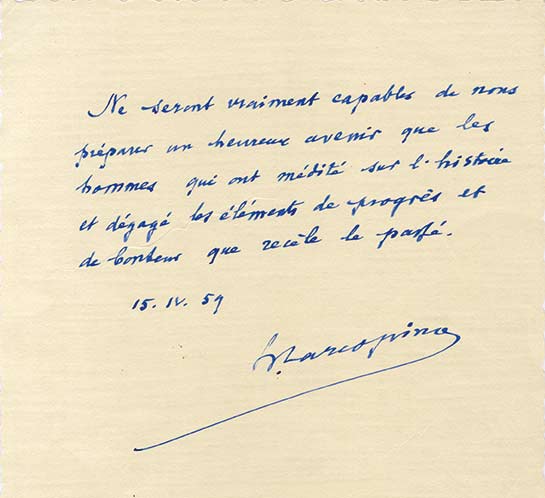 Ne seront vraiment capables de nous
préparer un heureux avenir que les
hommes qui ont médité sur l'histoire
et dégagé les éléments de progrès et
de bonheur que recèle le passé.
15. IV. 59